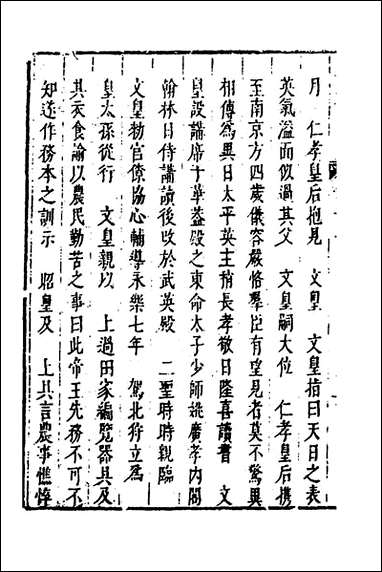 月　仁孝皇后抱見　文皇　文皇指曰天日之表
英氣溢面似過其父　文皇嗣大位　仁孝皇后携
至南京方四歲儀容嚴恪羣臣有望見者莫不驚異
相傳爲異日太平英主稍長孝敬日隆喜讀書　文
皇設講席于華蓋殿之東命太子少師姚廣孝內閣
翰林日侍講讀後改於武英殿　二聖時時親臨
文皇勑官僚協心輔導永樂七年　駕北狩立爲
皇太孫從行　文皇親以　上過田家徧覽器具及
其衣食諭以農民勤苦之事曰此帝王先務不可不
知遂作務本之訓示　昭皇及　上具言農事憔悴